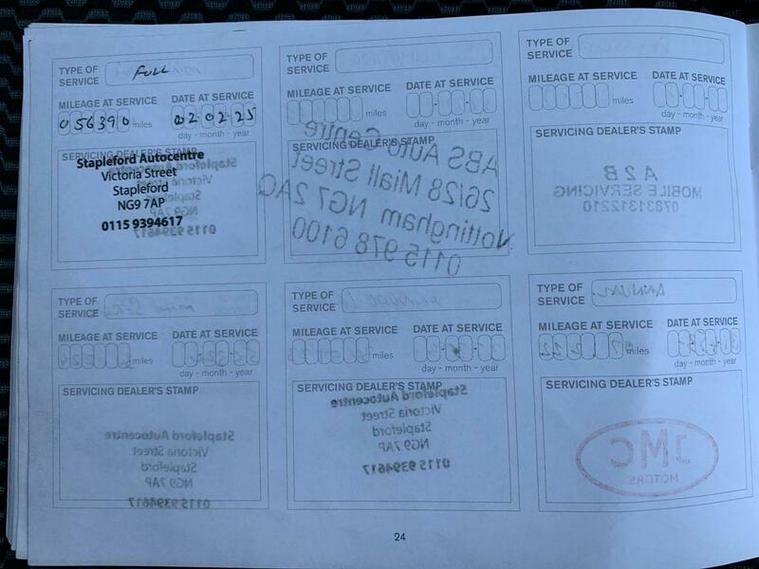 TYPE OF SERVICE FULL
MILEAGE AT SERVICE
056390 miles
DATE AT SERVICE
02-02-25
day - month - year
SERVICING DEALER'S STAMP
Stapleford Autocentre
Victoria Street
Stapleford
NG9 7AP
0115 9394617
TYPE OF SERVICE
MILEAGE AT SERVICE
miles
DATE AT SERVICE
day - month - year
SERVICING DEALER'S STAMP
ABS Auto Centre
26/28 Miall Street
Nottingham NG7 2AQ
0115 978 6100
TYPE OF SERVICE
MILEAGE AT SERVICE
miles
DATE AT SERVICE
day - month - year
SERVICING DEALER'S STAMP
A2B
MOBILE SERVICING
07831312210
TYPE OF SERVICE
MILEAGE AT SERVICE
miles
DATE AT SERVICE
day - month - year
SERVICING DEALER'S STAMP
Stapleford Autocentre
Victoria Street
Stapleford
NG9 7AP
0115 9394617
TYPE OF SERVICE
MILEAGE AT SERVICE
miles
DATE AT SERVICE
day - month - year
SERVICING DEALER'S STAMP
Stapleford Autocentre
Victoria Street
Stapleford
NG9 7AP
0115 9394617
TYPE OF SERVICE
MILEAGE AT SERVICE
miles
DATE AT SERVICE
day - month - year
SERVICING DEALER'S STAMP
JMC
MOTORS
24